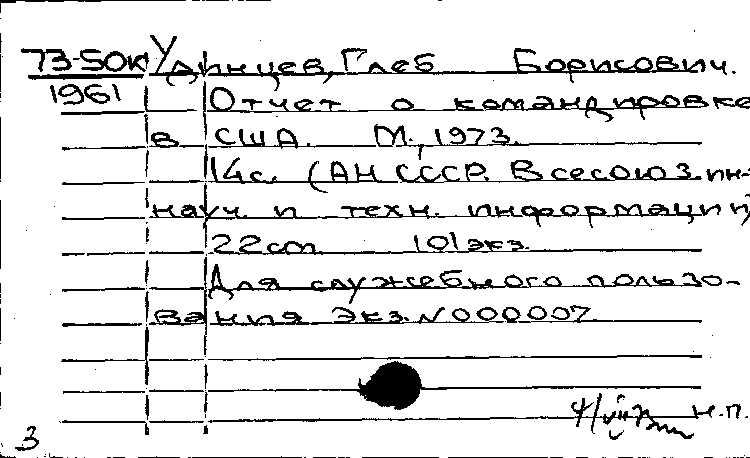 73-50к Удинцев, Глеб Борисович.
1961 Отчет о командировке
в США. М., 1973.
14с. (АН СССР. Всесоюз. ин-т
науч. и техн. информации)
22см 101экз.
Для служебного пользо-
вания Экз. N000007
н.п.
3